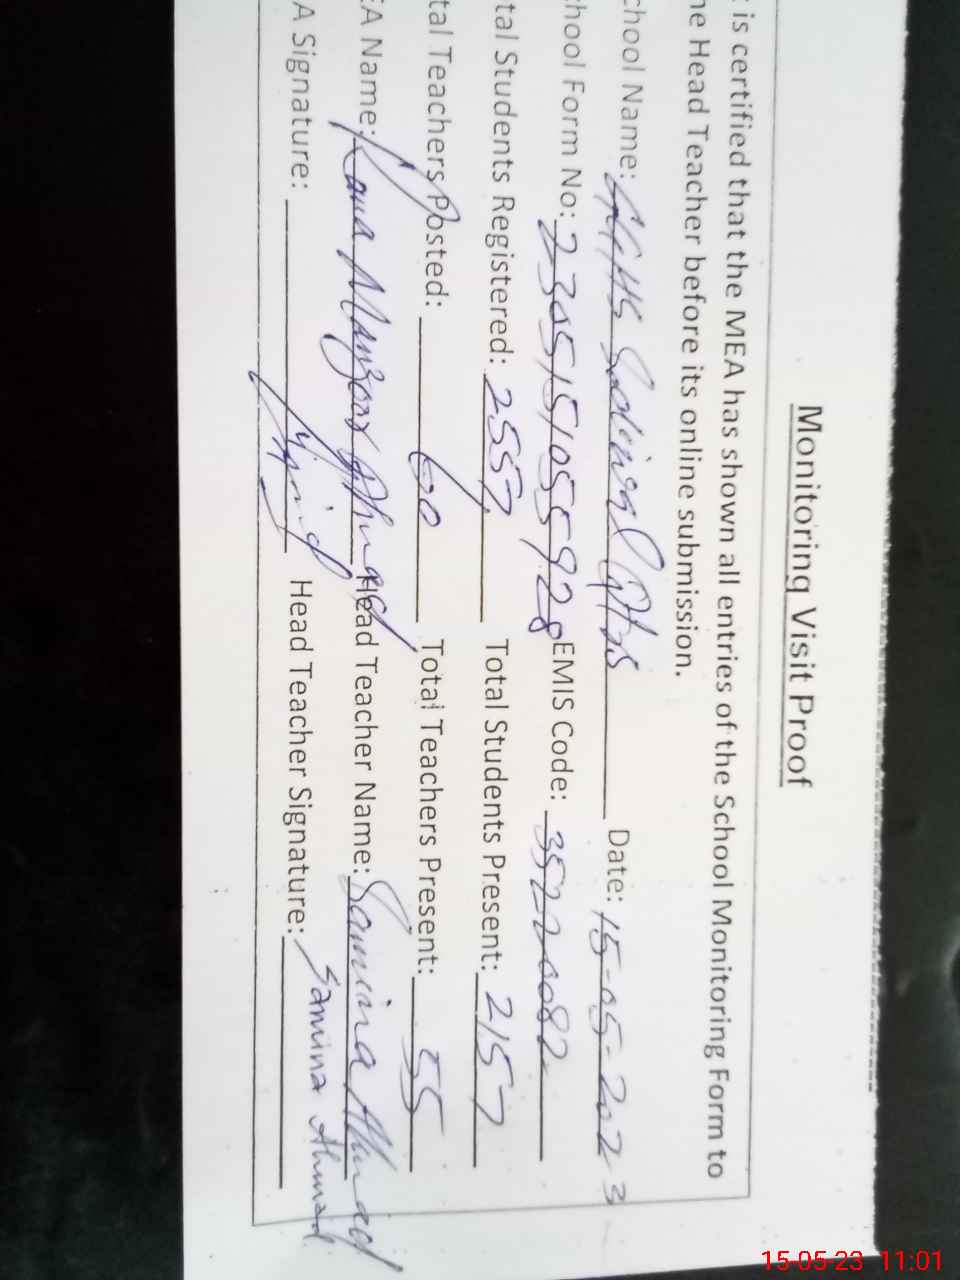 Monitoring Visit Proof
is certified that the MEA has shown all entries of the School Monitoring Form to
he Head Teacher before its online submission.
chool Name: GGHS Date: 15-05-2023
chool Form No: 2305151055928 EMIS Code: 35220082
tal Students Registered: 2557 Total Students Present: 2157
tal Teachers Posted: 60 Total Teachers Present: 55
EA Name: Rana Manzoor Ahmad Head Teacher Name: Samina Ahmad
A Signature: Head Teacher Signature: Samina Ahmad
15-05-23 11:01